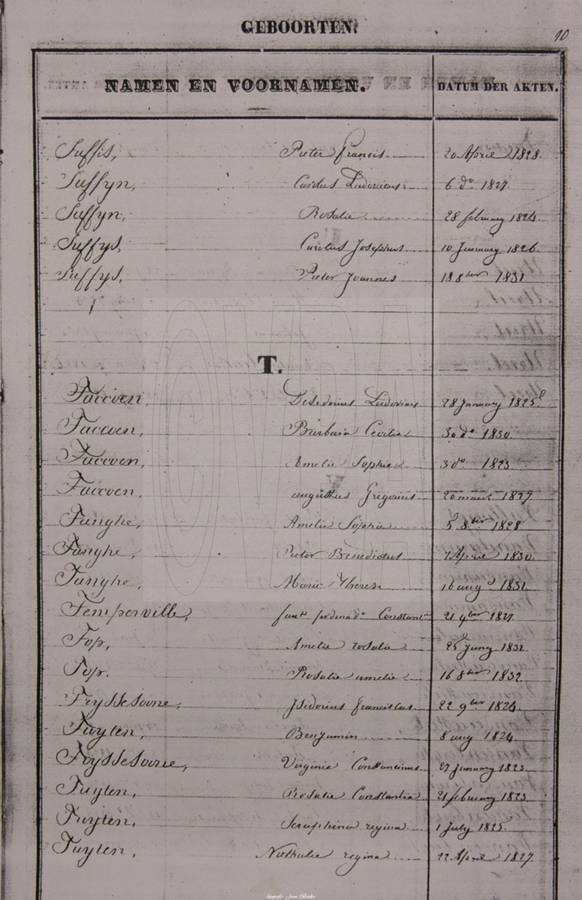 GEBOORTEN.
90
NAMEN EN VOORNAMEN. DATUM DER AKTEN.
Suffis, Pieter Francis 20 April 1828
Suffyn, Carolus Ludovicus 6 do 1827
Suffyn, Rosalie 28 february 1824
Suffys, Carolus Josephus 10 January 1826
Suffys, Pieter Joannes 18 8ber 1831
T.
Taccoen, Desiderius Ludovicus 28 January 1825
Taccoen, Barbara Cecilia 30 do 1830
Taccoen, Amelie Sophie 3 do 1823
Taccoen. augustus Gregorius 20 maart 1827
Tanghe, Amelia Sophia 5 8ber 1828
Tanghe, Pieter Benedictus 7 April 1830
Tanghe, Marie Therese 16 augs 1831
Temperville, Constant 21 9ber 1827
Top, Amelie rosalie 25 Juny 1831
Top. Rosalie amelie 16 8ber 1832
Tryssesoone, Isidorius franciscus 22 9ber 1824
Tuyten, Benjamin 8 aug 1824
Tryssesoone, Virginia Constancia 27 January 1823
Tuyten, Rosalie Constantia 21 february 1823
Tuyten, Seraphina regina 1 July 1825
Tuyten, Nathalie regina 22 April 1827